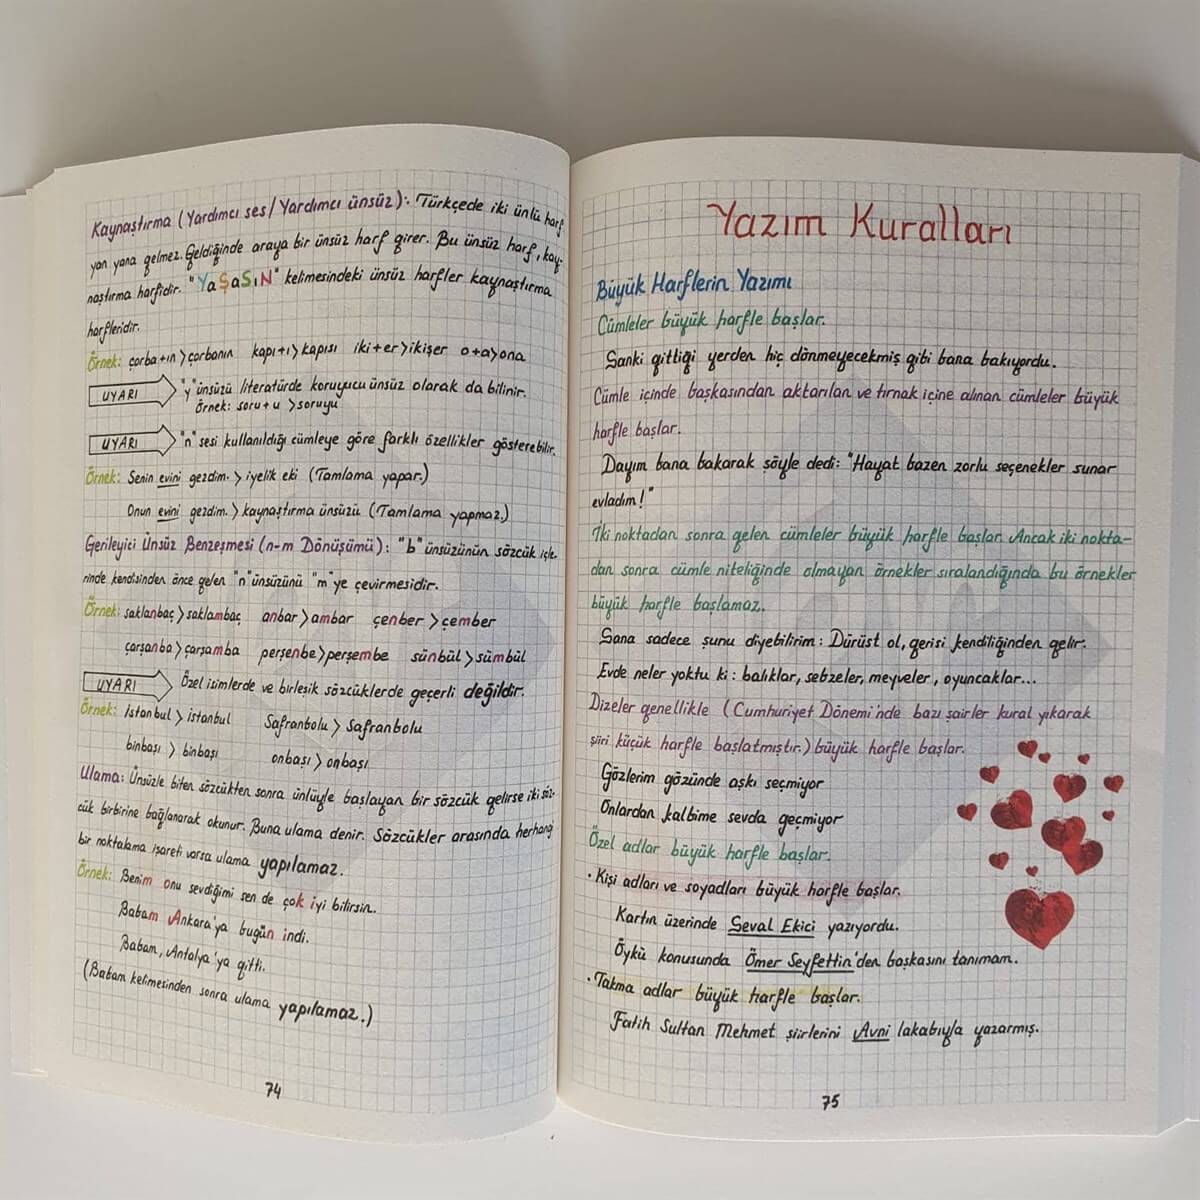 Kaynaştırma (Yardımcı ses/Yardımcı ünsüz): Türkçede iki ünlü harf
yan yana gelmez. Geldiğinde araya bir ünsüz harf girer. Bu ünsüz harf, kay-
naştırma harfidir. "YaŞaSıN" kelimesindeki ünsüz harfler kaynaştırma
harfleridir.
Örnek: çorba+ın>çorbanın kapı+ı>kapısı iki+er>ikişer o+a>ona
UYARI "y" ünsüzü literatürde koruyucu ünsüz olarak da bilinir.
Örnek: soru+u >soruyu
UYARI "n" sesi kullanıldığı cümleye göre farklı özellikler gösterebilir.
Örnek: Senin evini gezdim. > iyelik eki (Tamlama yapar.)
Onun evini gezdim. > kaynaştırma ünsüzü (Tamlama yapmaz.)
Gerileyici Ünsüz Benzeşmesi (n-m Dönüşümü): "b" ünsüzünün sözcük içle-
rinde kendisinden önce gelen "n" ünsüzünü "m"ye çevirmesidir.
Örnek: saklanbaç>saklambaç anbar>ambar çenber >çember
çarşanba>çarşamba perşenbe>perşembe sünbül>sümbül
UYARI Özel isimlerde ve birleşik sözcüklerde geçerli değildir.
Örnek: İstanbul > istanbul Safranbolu > Safranbolu
binbaşı > binbaşı onbaşı > onbaşı
Ulama: Ünsüzle biten sözcükten sonra ünlüyle başlayan bir sözcük gelirse iki söz-
cük birbirine bağlanarak okunur. Buna ulama denir. Sözcükler arasında herhangi
bir noktalama işareti varsa ulama yapılamaz.
Örnek: Benim onu sevdiğimi sen de çok iyi bilirsin.
Babam Ankara'ya bugün indi.
Babam, Antalya'ya gitti.
(Babam kelimesinden sonra ulama yapılamaz.)
74
Yazım Kuralları
Büyük Harflerin Yazımı
Cümleler büyük harfle başlar.
Sanki gittiği yerden hiç dönmeyecekmiş gibi bana bakıyordu.
Cümle içinde başkasından aktarılan ve tırnak içine alınan cümleler büyük
harfle başlar.
Dayım bana bakarak şöyle dedi: "Hayat bazen zorlu seçenekler sunar
evladım!"
İki noktadan sonra gelen cümleler büyük harfle başlar. Ancak iki nokta-
dan sonra cümle niteliğinde olmayan örnekler sıralandığında bu örnekler
büyük harfle başlamaz.
Sana sadece şunu diyebilirim: Dürüst ol, gerisi kendiliğinden gelir.
Evde neler yoktu ki: balıklar, sebzeler, meyveler, oyuncaklar...
Dizeler genellikle (Cumhuriyet Dönemi'nde bazı şairler kural yıkarak
şiiri küçük harfle başlatmıştır.) büyük harfle başlar.
Gözlerim gözünde aşkı seçmiyor
Onlardan kalbime sevda geçmiyor
Özel adlar büyük harfle başlar.
• Kişi adları ve soyadları büyük harfle başlar.
Kartın üzerinde Seval Ekici yazıyordu.
Öykü konusunda Ömer Seyfettin'den başkasını tanımam.
• Takma adlar büyük harfle başlar.
Fatih Sultan Mehmet şiirlerini Avni lakabıyla yazarmış.
75